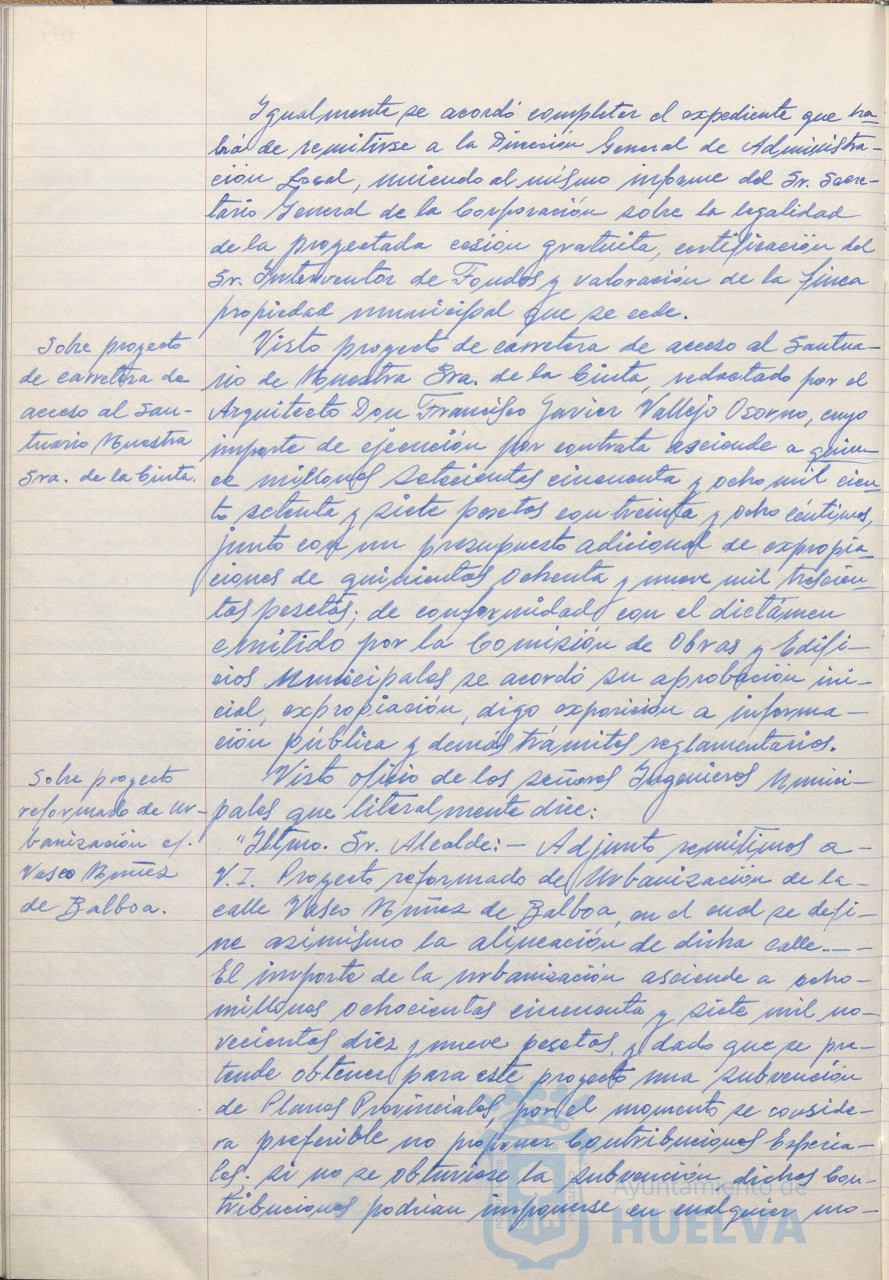 Igualmente se acordó completar el expediente que ha-
brá de remitirse a la Dirección General de Administra-
ción Local, uniendo al mismo informe del Sr. Secre-
tario General de la Corporación sobre la legalidad
de la proyectada cesión gratuita, certificación del
Sr. Interventor de Fondos y valoración de la finca
propiedad municipal que se cede.
Sobre proyecto
de carretera de
acceso al San-
tuario Nuestra
Sra. de la Cinta.
Visto proyecto de carretera de acceso al Santua-
rio de Nuestra Sra. de la Cinta, redactado por el
Arquitecto Don Francisco Javier Vallejo Osorno, cuyo
importe de ejecución por contrata asciende a quin-
ce millones setecientas cincuenta y ocho mil cien-
to setenta y siete pesetas con treinta y ocho céntimos,
junto con un presupuesto adicional de expropia-
ciones de quinientas ochenta y nueve mil trescien-
tas pesetas; de conformidad con el dictámen
emitido por la Comisión de Obras y Edifi-
cios Municipales se acordó su aprobación ini-
cial, expropiación, digo exposición a informa-
ción pública y demás trámites reglamentarios.
Sobre proyecto
reformado de Ur-
banización c/.
Vasco Núñez
de Balboa.
Visto oficio de los señores Ingenieros Munici-
pales que literalmente dice:
"Iltmo. Sr. Alcalde:- Adjunto remitimos a-
V.I. Proyecto reformado de Urbanización de la-
calle Vasco Núñez de Balboa, en el cual se defi-
ne asimismo la alineación de dicha calle.--
El importe de la urbanización asciende a ocho-
millones ochocientas cincuenta y siete mil no-
vecientas diez y nueve pesetas, y dado que se pre-
tende obtener para este proyecto una subvención
de Planes Provinciales, por el momento se conside-
ra preferible no proponer Contribuciones Especia-
les; si no se obtuviese la subvención dichas Con-
tribuciones podrían imponerse en cualquier mo-
Ayuntamiento de
HUELVA